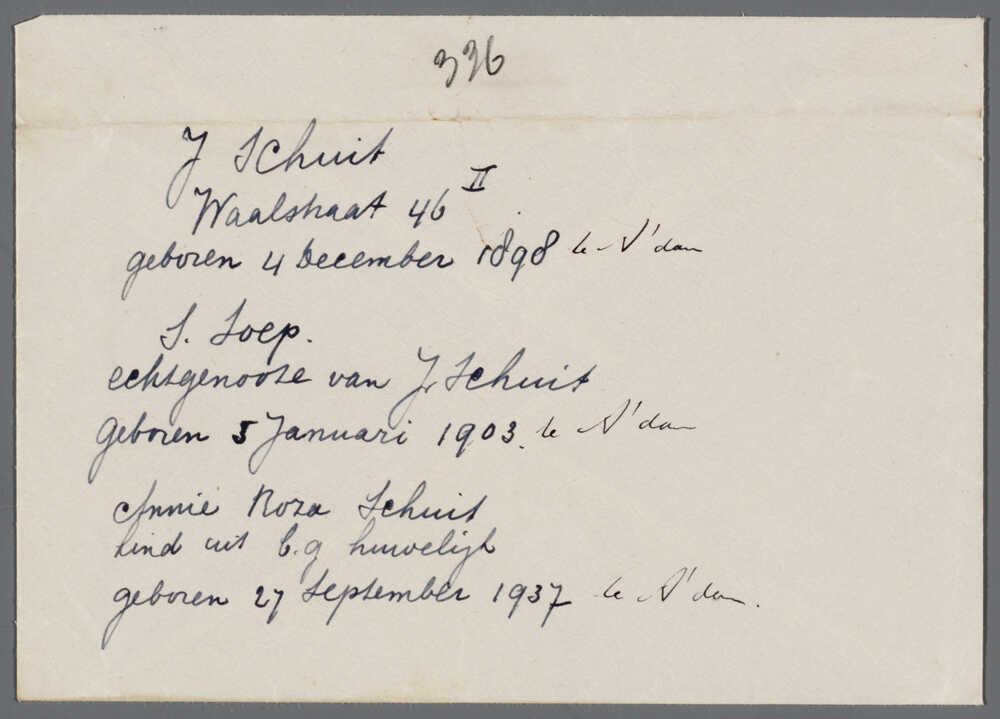 336
J Schuit
Waalstraat 46 II
geboren 4 December 1898 te A'dam
S. Soep.
echtgenoote van J. Schuit
geboren 5 Januari 1903. te A'dam
Annie Roza Schuit
kind uit b.g huwelijk
geboren 27 September 1937 te A'dam.